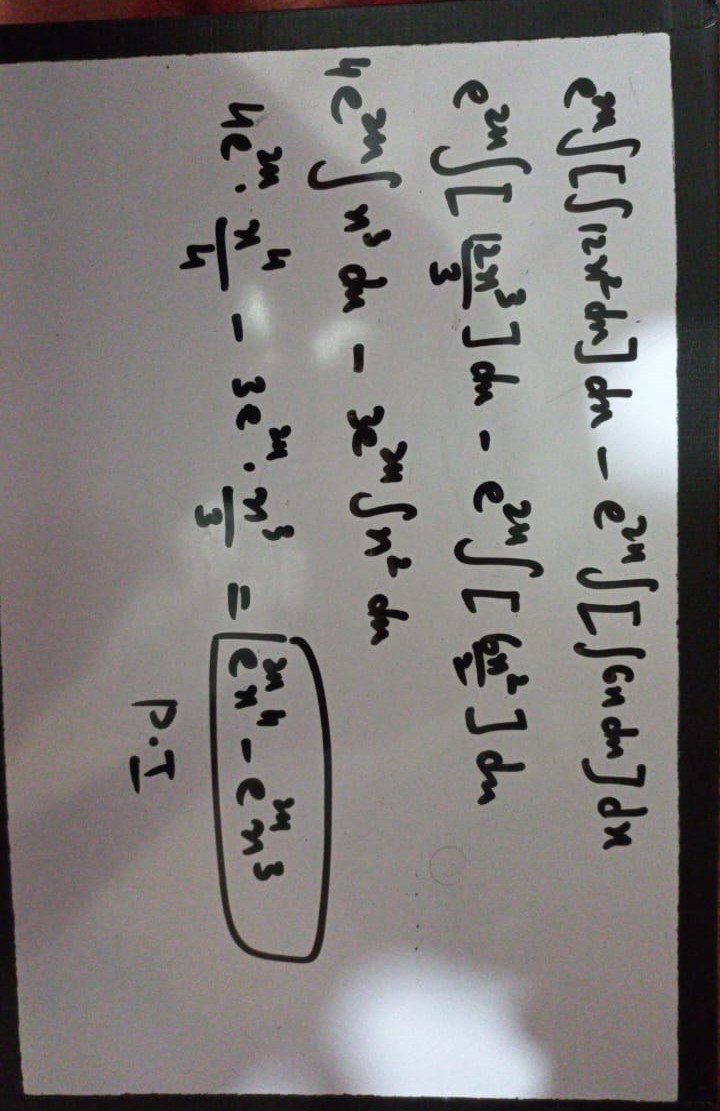 e²ˣ∫[∫12x²dx]dx − e²ˣ∫[∫6x dx]dx
e²ˣ∫[12x³/3]dx - e²ˣ∫[6x²/2]dx
4e²ˣ∫x³ dx − 3e²ˣ∫x² dx
4e²ˣ · x⁴/4 − 3e²ˣ · x³/3 = e²ˣx⁴ − e²ˣx³
P.I